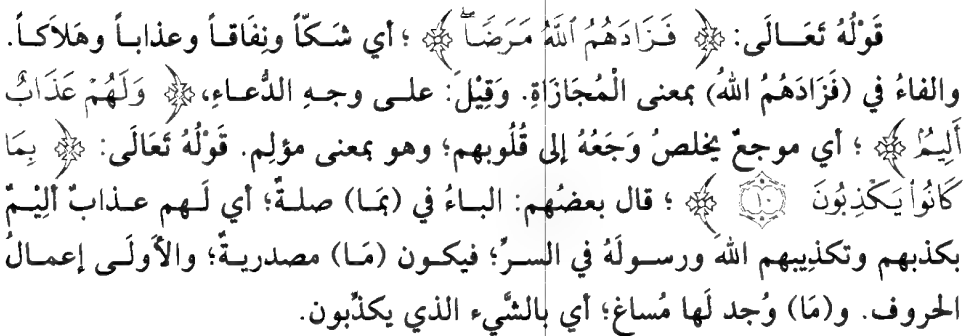 قَوْلُهُ تَعَــالَى: ﴿ فَزَادَهُمُ ٱللَّهُ مَرَضًاۖ ﴾ ؛ أي شَـكّاً ونفَاقـاً وعذابـاً وهَلاَكـاً.
والفاءُ في (فَزَادَهُمُ اللهُ) بمعنى الْمُجَازَاةِ. وَقِيْلَ: علـى وجـهِ الدُّعـاءِ، ﴿ وَلَهُمْ عَذَابٌ
أَلِيمٌۢ ﴾ ؛ أي موجعٌ يخلصُ وَجَعُهُ إلى قُلُوبهم؛ وهو بمعنى مؤلِم. قَوْلُهُ تَعَالَى: ﴿ بِمَا
كَانُوا۟ يَكْذِبُونَ ۝١٠ ﴾ ؛ قال بعضُهم: البـاءُ في (بمَـا) صلـةٌ؛ أي لَـهم عـذابٌ ألِيْـمٌ
بكذبهم وتكذِيبهم اللهَ ورسـولَهُ في السـرِّ؛ فيكـون (مَـا) مصدريـةٌ؛ والأَولَـى إعمـالُ
الحروف. و(مَا) وُجد لَها مُساغ؛ أي بالشَّيء الذي يكذِّبون.